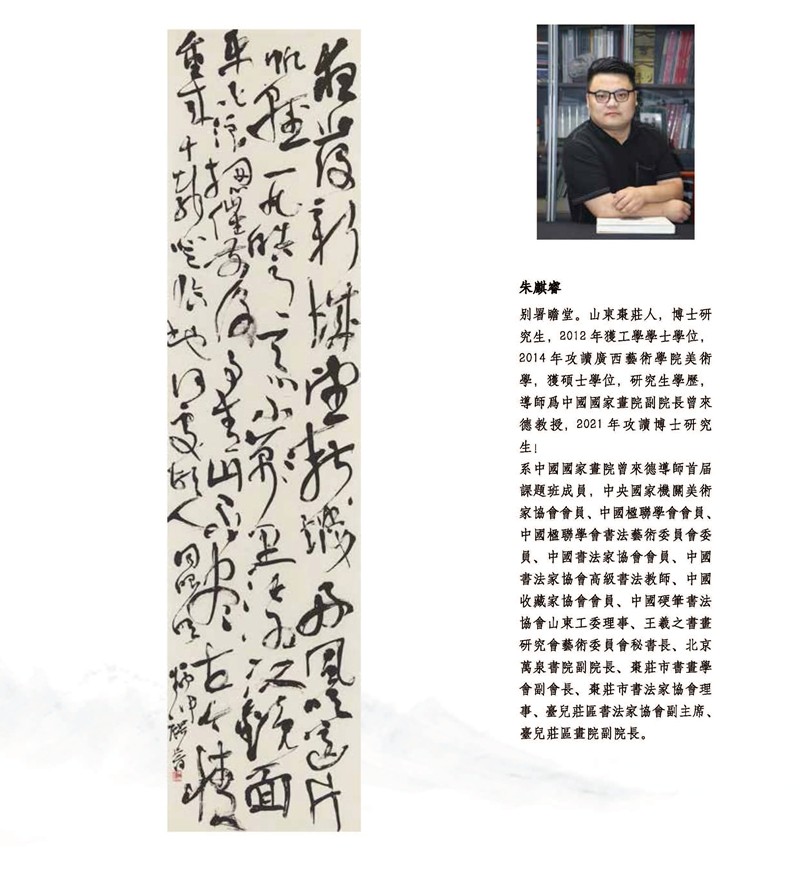 夜發新城望 好風吹 片
帆輕一 皓 小萬里 江鏡面
平 催 青山 盡古今情
重來十載 臨 地何處故人
朱麒睿
别署瞻堂。山東棗莊人，博士研
究生，2012年獲工學學士學位，
2014年攻讀廣西藝術學院美術
學，獲碩士學位，研究生學歷，
導師爲中國國家畫院副院長曾來
德教授，2021年攻讀博士研究
生！
系中國國家畫院曾來德導師首届
課題班成員，中央國家機關美術
家協會會員、中國楹聯學會會員、
中國楹聯學會書法藝術委員會委
員、中國書法家協會會員、中國
書法家協會高級書法教師、中國
收藏家協會會員、中國硬筆書法
協會山東工委理事、王羲之書畫
研究會藝術委員會秘書長、北京
萬泉書院副院長、棗莊市書畫學
會副會長、棗莊市書法家協會理
事、臺兒莊區書法家協會副主席、
臺兒莊區畫院副院長。